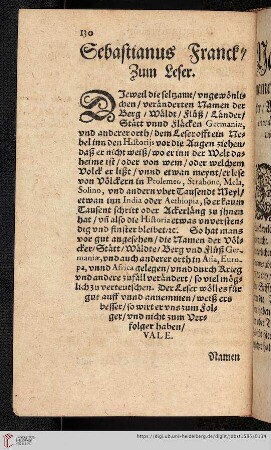 130
Sebastianus Franck/
Zum Leser.
DJeweil die seltzamt/ vngewönli-
chen/ veränderten Namen der
Berg/ Wäldt/ Flüß/ Länder/
Statt vnnd Fläcken Germaniæ,
vnd anderer orth/ dem Leser offt ein Ne-
bel inn den Historijs vor die Augen ziehen/
daß er nicht weiß/ wo er inn der Welt da-
heime ist/ oder von wem/ oder welchem
Volck er lißt/ vnnd etwan meynt/ er lese
von Völckern in Prolemeo, Strabone, Mela,
Solino, vnd andern vber Tausendt Meyl/
etwan inn India oder Aethiopia, so er kaum
Tausent schritt oder Ackerläng zu jhnen
hat/ vñ also die Historia etwas vnverstens
dig vnd finster bleibet/ ꝛc. So hat mans
vor gut angesehen/ die Namen der Völ-
cker/ Stätt/ Wäldte/ Berg vnd Flüß Ger-
maniæ, vnd auch anderer orth in Asia, Euro-
pa, vnnd Africa gelegen/ vnnd durch Krieg
vnd andere zufäll verändert/ so viel mög-
lich zu verteutschen. Der Leser wölles für
gut auff vnnd annemmen/ werß ers
besser/ so wirt er vns zum Fol-
ger/ vnd nicht zum Ver-
folger haben/
VALE.
Namen